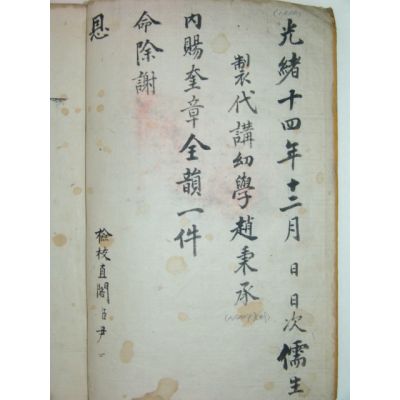 光緖十四年十二月 日日次儒生
製代講幼學趙秉承
內賜奎章全韻一件
命除謝
恩
檢校直閣臣尹